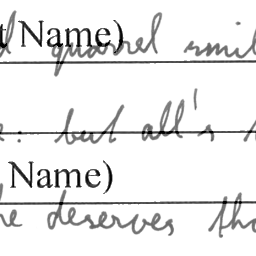 t Name)
quarrel smil
: but all's
Name)
he deserves tho